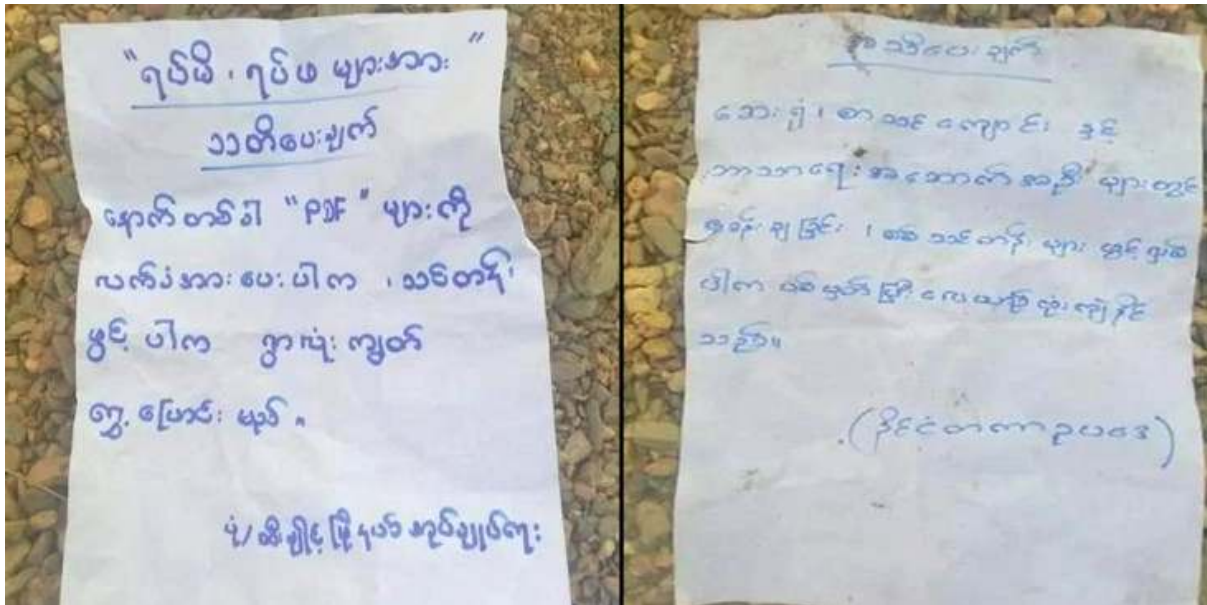 "ရပ်မိ ၊ ရပ်ဖ များအား"
သတိပေးချက်
နောက်တစ်ခါ "PDF" များကို
လက်ခံအားပေးပါက ၊ သင်တန်း
ဖွင့်ပါက ရွာလုံးကျွတ်
ရွှေ့ပြောင်းမည်။
ပုံ/ဆီးချိုင့်မြို့နယ်အုပ်ချုပ်ရေး
သတိပေးချက်
ဆေးရုံ ၊ စာသင်ကျောင်း နှင့်
ဘာသာရေးအဆောက်အဦ များတွင်
စခန်းချခြင်း ၊ စစ်သင်တန်း များ ဖွင့်
ပါက ပစ်မှတ်ပြီး လေယာဉ် ဗုံးကြဲနိုင်
သည်။
(နိုင်ငံတကာဥပဒေ)